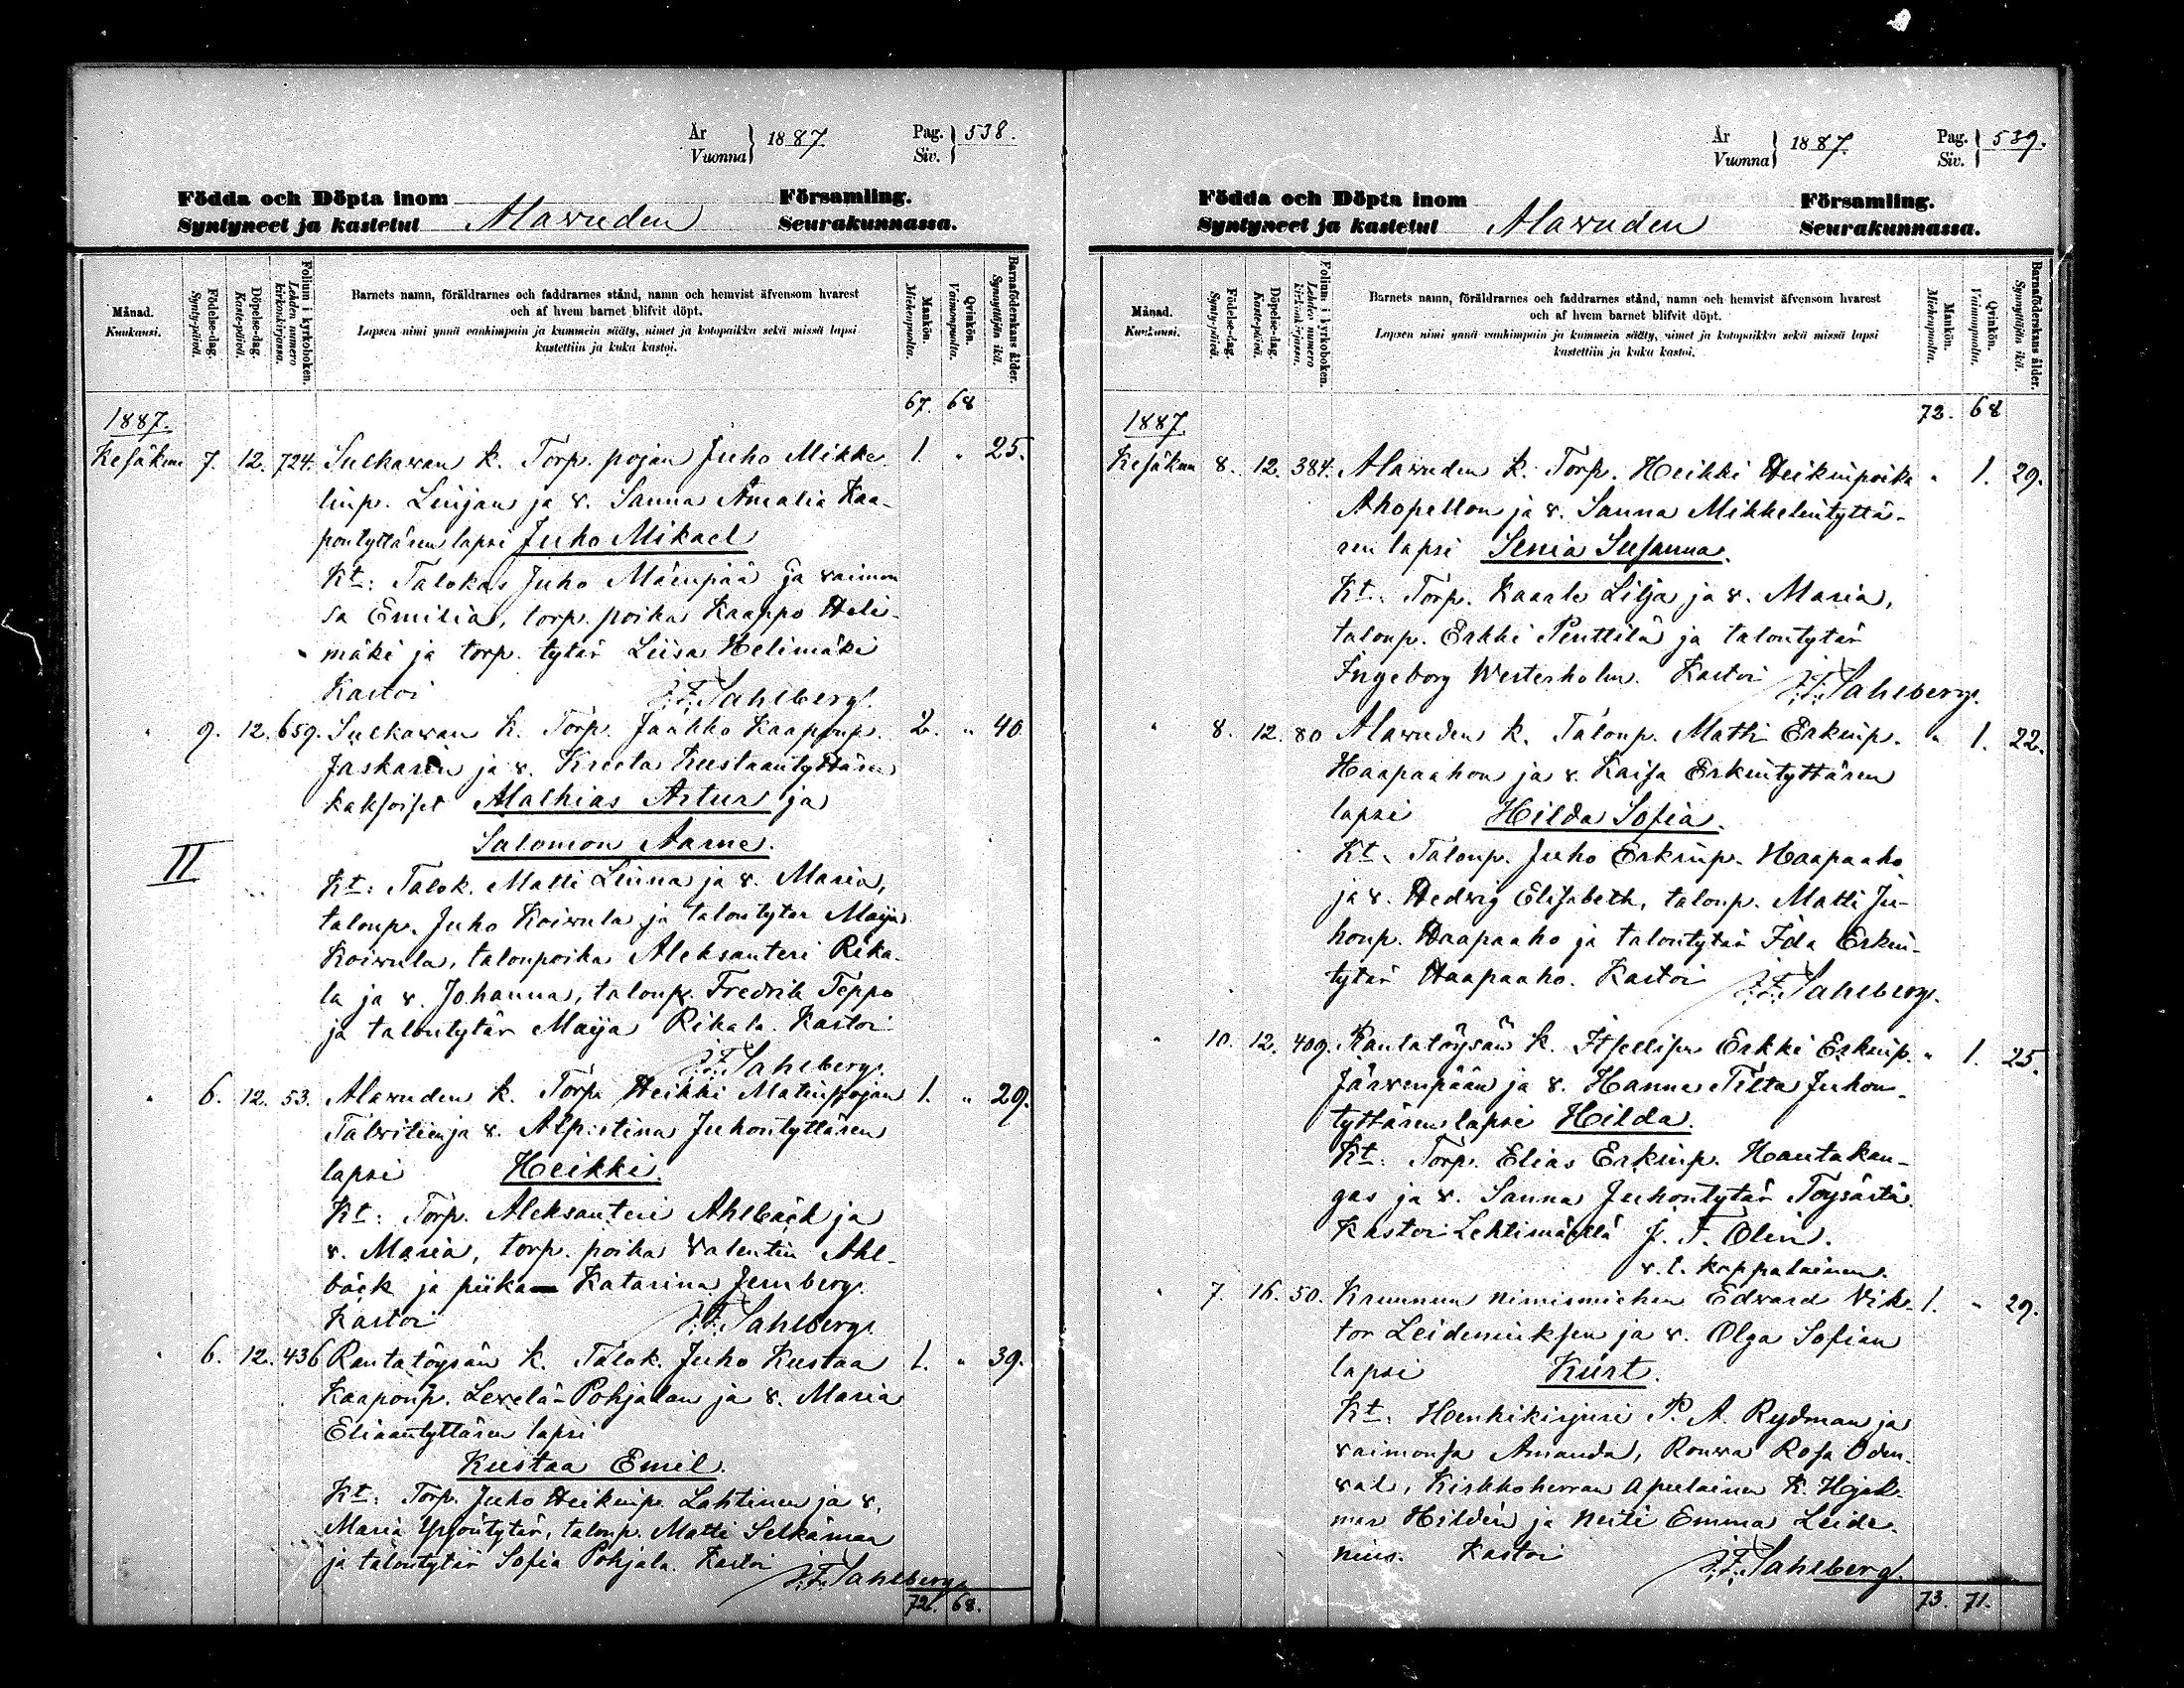 År
Vuonna
1887.
Pag.
Siv.
538.
Födda och Döpta inom
Församling.
Syntyneet ja kastetut
Alavuden
Seurakunnassa.
Månad.
Kuukausi.
Födelse-dag.
Synty-päivä.
Döpelse-dag.
Kaste-päivä.
Folium i kyrkoboken.
Lehden numero
kirkonkirjassa.
Barnets namn, föräldrarnes och faddrarnes stånd, namn och hemvist äfvensom hvarest
och af hvem barnet blifvit döpt.
Lapsen nimi ynnä vanhimpain ja kummein sääty, nimet ja kotopaikka sekä missä lapsi
kastettiin ja kuka kastoi.
Mankön.
Miehenpuolta.
Qvinkön.
Vaimonpuolta.
Barnaföderskans ålder.
Synnyttäjän ikä.
67. 68
1887.
Kesäkuu 7. 12. 724. Sulkavan k. Torp. pojan Juho Mikke- 1. " 25.
linp. Linjan ja v. Sanna Amalia Kaa-
pontyttären lapsi Juho Mikael
Kt: Talokas Juho Mäenpää ja vaimon
sa Emilia, torp. poika Kaappo Heli-
mäki ja torp. tytär Liisa Helimäki
Kastoi J. F. Sahlberg.
" 9. 12. 659. Sulkavan k. Torp. Jaakko Kaaponp. 2. " 40
Jaskarin ja v. Kreeta Kustaantyttären
kaksoiset Mathias Artur ja
Salomon Aarne.
II
Kt: Talok. Matti Linna ja v. Maria,
talonp. Juho Koivula ja talontytär Maija
Koivula, talonpoika Aleksanteri Rika-
la ja v. Johanna, talonp. Fredrik Teppo
ja talontytär Maija Rikala. Kastoi
J. F. Sahlberg.
" 6. 12. 53. Alavuden k. Torp. Heikki Matinpojan 1. " 29.
Talvitien ja v. Alpertina Juhontyttären
lapsi Heikki.
Kt: Torp. Aleksanteri Ahlbäck ja
v. Maria, torp. poika Valentin Ahl-
bäck ja piika Katarina Jernberg.
Kastoi J. F. Sahlberg.
" 6. 12. 436 Rantatöysän k. Talok. Juho Kustaa 1. " 39.
Kaaponp. Levelä-Pohjalan ja v. Maria
Eliaantyttären lapsi
Kustaa Emil.
Kt: Torp. Juho Heikinp. Lahtinen ja v.
Maria Yrjöntytär, talonp. Matti Selkämaa
ja talontytär Sofia Pohjala. Kastoi
J. F. Sahlberg.
72. 68.
År
Vuonna
1887.
Pag.
Siv.
539.
Födda och Döpta inom
Församling.
Syntyneet ja kastetut
Alavuden
Seurakunnassa.
Månad.
Kuukausi.
Födelse-dag.
Synty-päivä.
Döpelse-dag.
Kaste-päivä.
Folium i kyrkoboken.
Lehden numero
kirkonkirjassa.
Barnets namn, föräldrarnes och faddrarnes stånd, namn och hemvist äfvensom hvarest
och af hvem barnet blifvit döpt.
Lapsen nimi ynnä vanhimpain ja kummein sääty, nimet ja kotopaikka sekä missä lapsi
kastettiin ja kuka kastoi.
Mankön.
Miehenpuolta.
Qvinkön.
Vaimonpuolta.
Barnaföderskans ålder.
Synnyttäjän ikä.
72. 68
1887.
Kesäkuu 8. 12. 384. Alavuden k. Torp. Heikki Heikinpoika " 1. 29.
Ahopellon ja v. Sanna Mikkelintyttä-
ren lapsi Senia Susanna.
Kt: Torp. Kaarle Lilja ja v. Maria,
talonp. Erkki Penttilä ja talontytär
Ingeborg Westerholm. Kastoi J. F. Sahlberg.
" 8. 12. 80 Alavuden k. Talonp. Matti Erkinp. " 1. 22.
Haapaahon ja v. Kaisa Erkintyttären
lapsi Hilda Sofia.
Kt: Talonp. Juho Erkinp. Haapaaho
ja v. Hedvig Elisabeth, talonp. Matti Ju-
honp. Haapaaho ja talontytär Ida Erkin-
tytär Haapaaho. Kastoi J. F. Sahlberg.
" 10. 12. 409. Rantatöysän k. Itsellisen Erkki Erkinp. " 1. 25.
Järvenpään ja v. Hanna Tilta Juhon-
tyttären lapsi Hilda.
Kt: Torp. Elias Erkinp. Hautakan-
gas ja v. Sanna Juhontytär Töysästä.
Kastoi Lehtimäellä J. F. Olin.
v. t. kappalainen.
" 7. 16. 50. Kruunun nimismiehen Edvard Vik- 1. " 29.
tor Leideniuksen ja v. Olga Sofian
lapsi Kurt.
Kt: Henkikirjuri P. A. Rydman ja
vaimonsa Amanda, Rouva Rosa Oden-
val, Kirkkoherran apulainen K. Hjal-
mar Hildén ja Neiti Emma Leide-
nius. Kastoi J. F. Sahlberg.
73. 71.